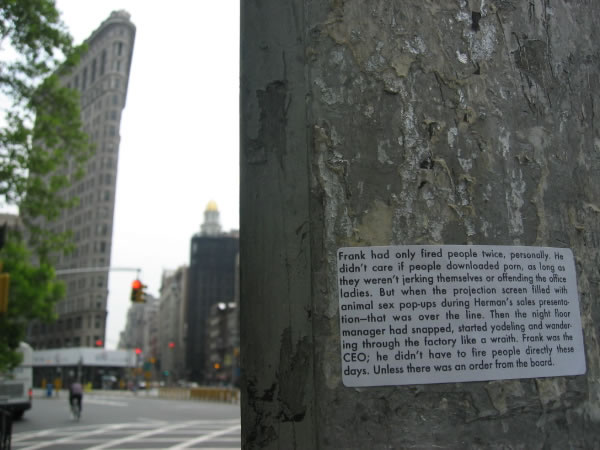 Frank had only fired people twice, personally. He
didn't care if people downloaded porn, as long as
they weren't jerking themselves or offending the office
ladies. But when the projection screen filled with
animal sex pop-ups during Herman's sales presenta-
tion—that was over the line. Then the night floor
manager had snapped, started yodeling and wander-
ing through the factory like a wraith. Frank was the
CEO; he didn't have to fire people directly these
days. Unless there was an order from the board.